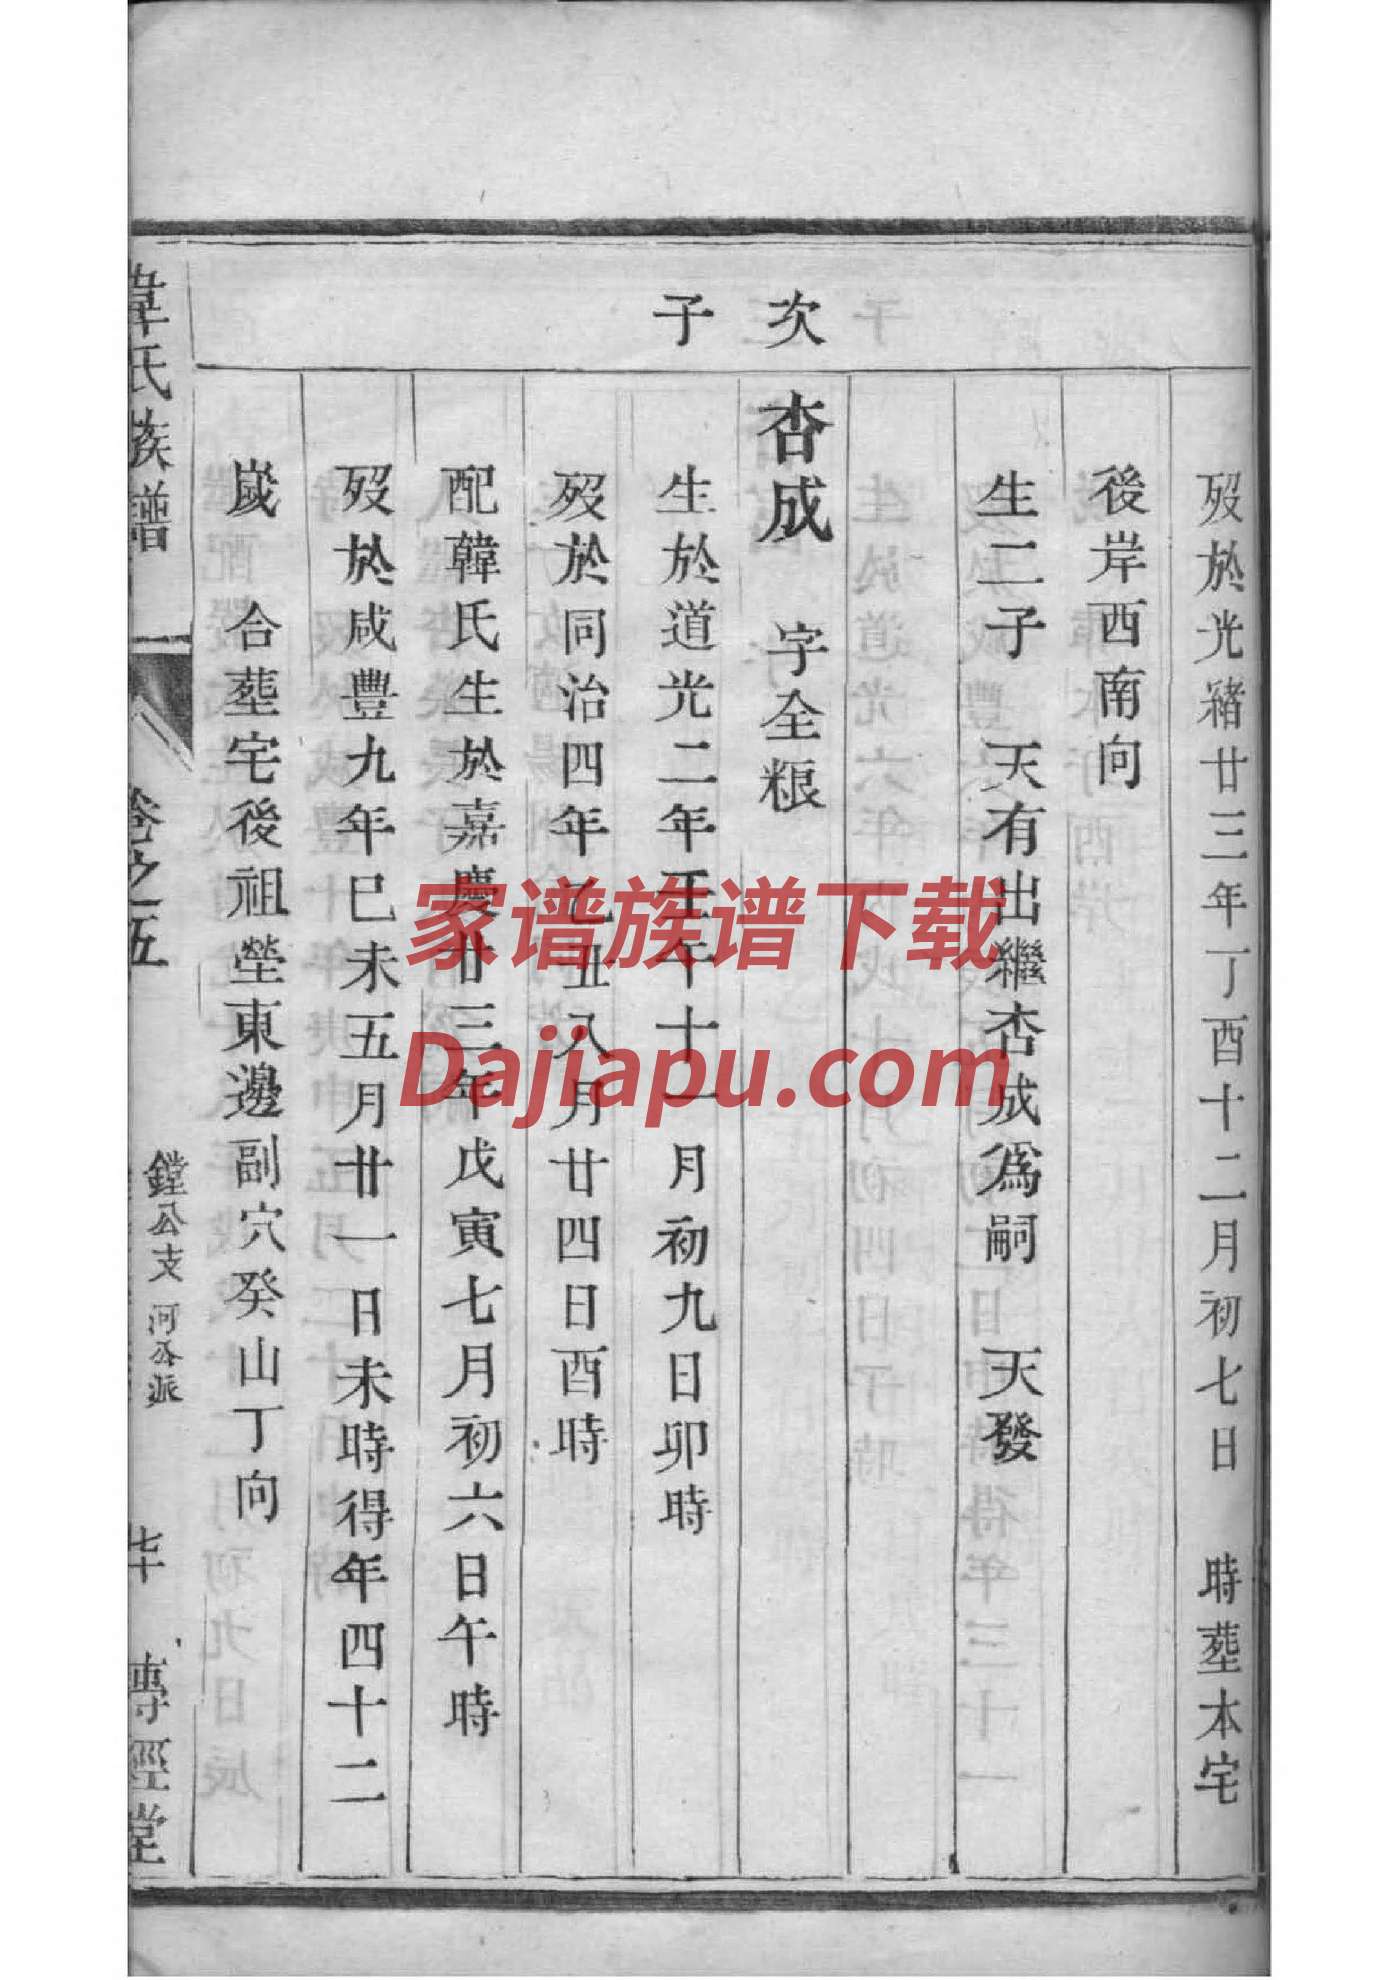 次子
歿於光緒廿三年丁酉十二月初七日 時葬本宅
後岸西南向
生二子 天有出繼杏成爲嗣 天發
杏成 字全粮
生於道光二年壬午十一月初九日卯時
歿於同治四年乙丑八月廿四日酉時
配韓氏生於嘉慶廿三年戊寅七月初六日午時
歿於咸豐九年已未五月廿一日未時得年四十二
歲 合葬宅後祖塋東邊副穴癸山丁向
韋氏族譜
卷之五
鏜公支 河公派
七十
傳經堂
家谱族谱下载
Dajiapu.com